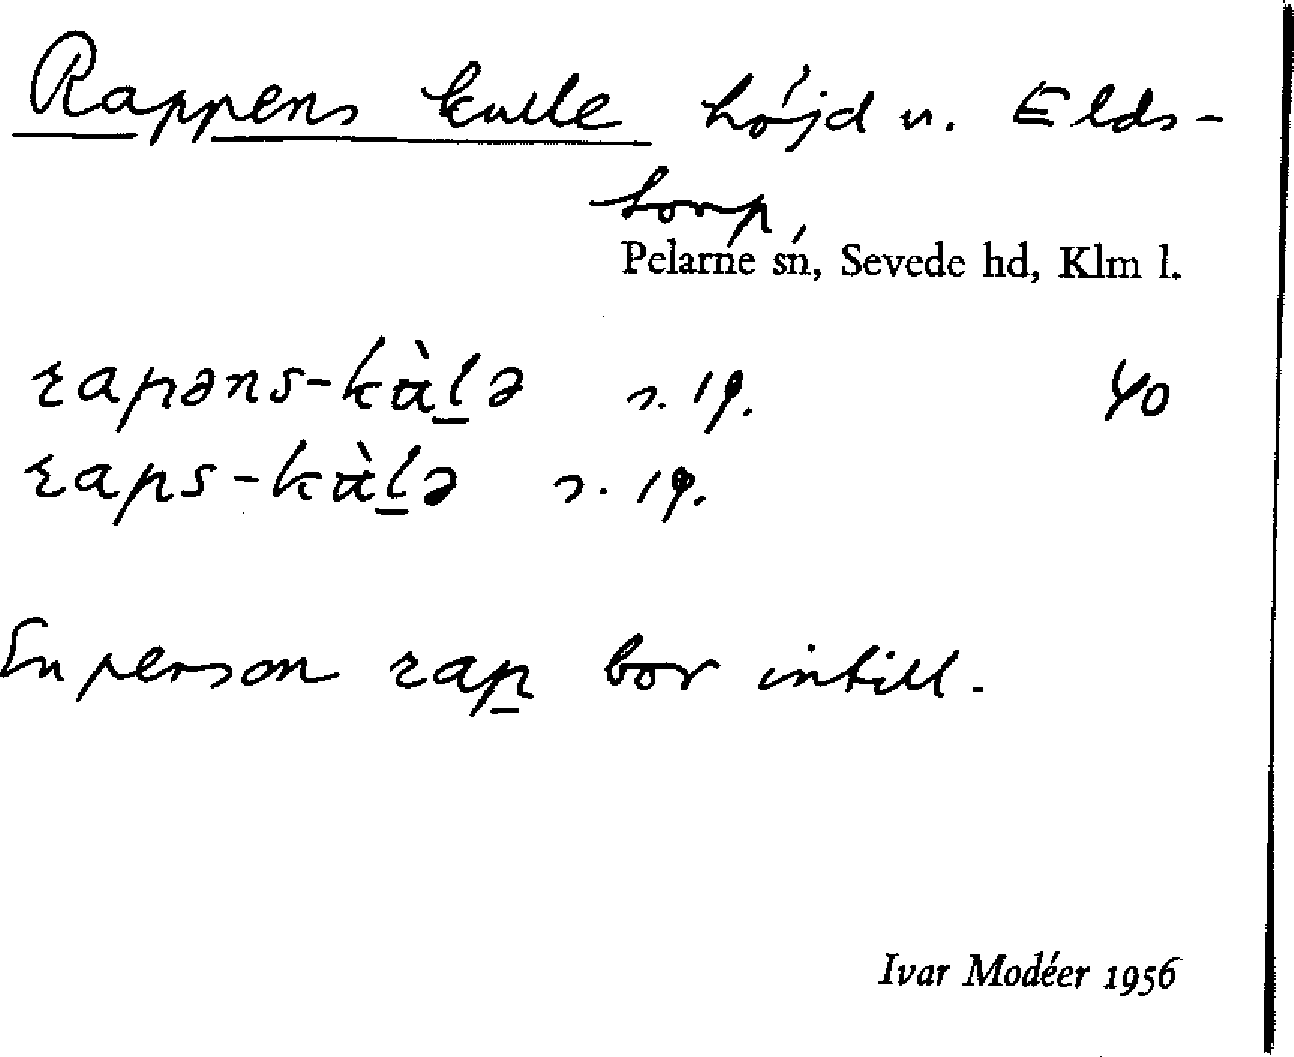 Rappens kulle höjd n. Elds-
torp,
Pelarne sn, Sevede hd, Klm l.
rapəns-kàlə s. 19. 40
raps-kàlə s. 19.
En person rap bor intill.
Ivar Modéer 1956